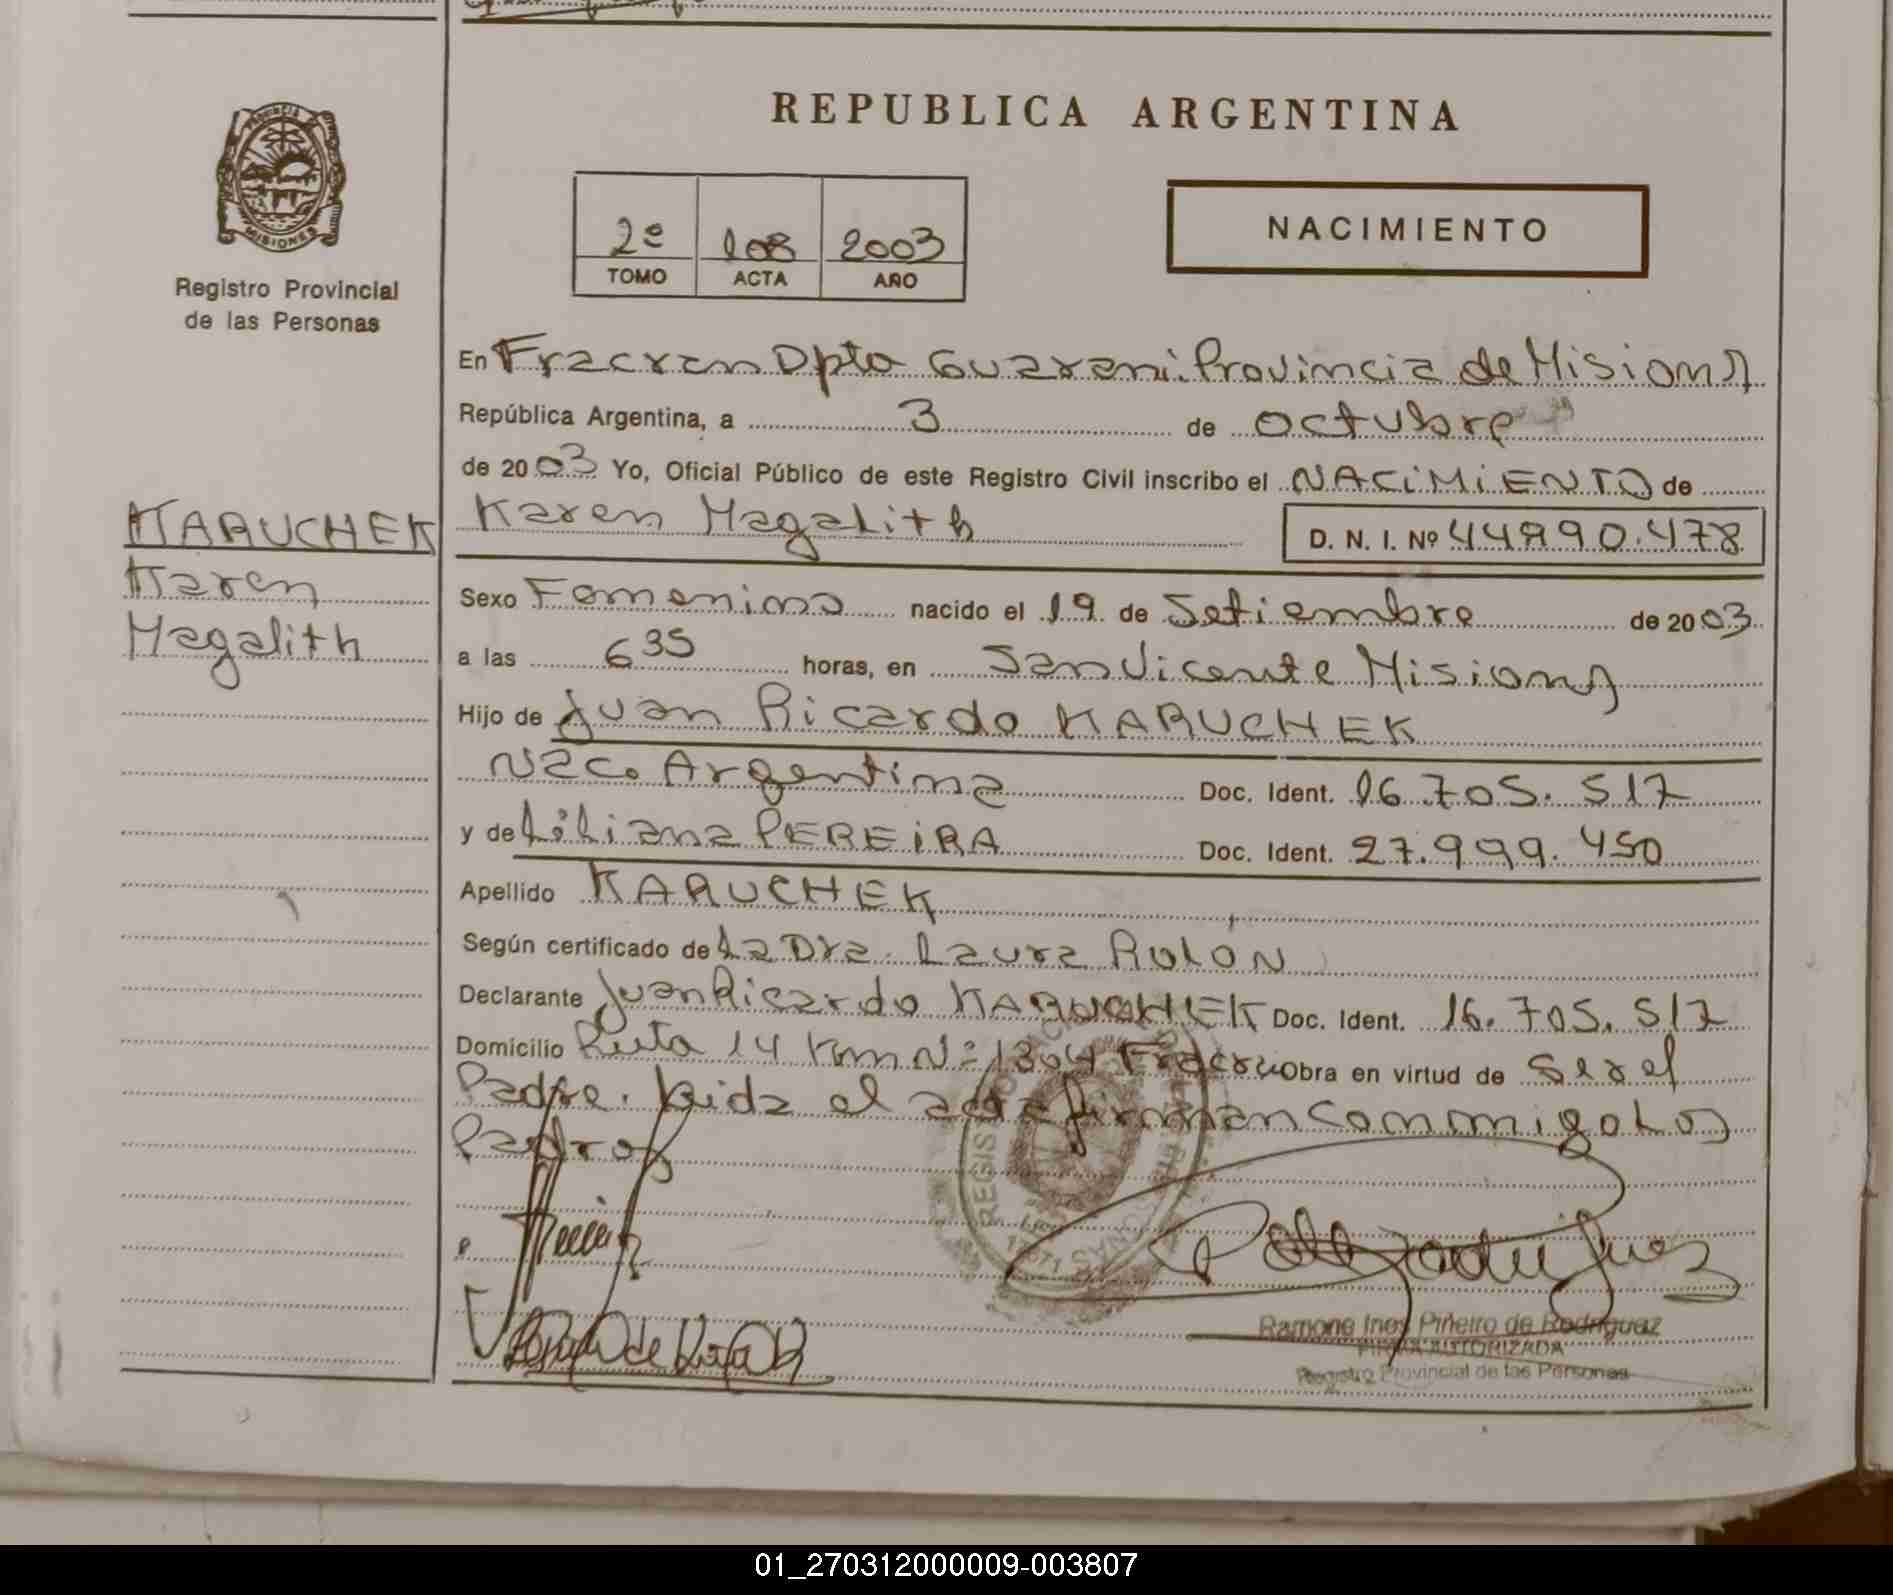 REPUBLICA ARGENTINA
PROVINCIA
MISIONES
Registro Provincial
de las Personas
2º 108 2003
TOMO ACTA AÑO
NACIMIENTO
En Fracran Dpto Guarani. Provincia de Misiones
República Argentina, a 3 de octubre
de 2003 Yo, Oficial Público de este Registro Civil inscribo el NACIMIENTO de
Karen Magalith D. N. I. Nº 44.990.478
KARUCHEK
Karen
Magalith
Sexo Femenino nacido el 19 de Setiembre de 2003
a las 6 35 horas, en San Vicente Misiones
Hijo de Juan Ricardo KARUCHEK
Nac. Argentina Doc. Ident. 16.705.517
y de Liliana PEREIRA Doc. Ident. 27.999.450
Apellido KARUCHEK
Según certificado de La Dra. Laura ROLON
Declarante Juan Ricardo KARUCHEK Doc. Ident. 16.705.517
Domicilio Ruta 14 Km Nº 1304 Obra en virtud de Ser el
Padre. Leida el acta firman conmigo Los
Padres
Ramona Ines Piñeiro de Rodriguez
FIRMA AUTORIZADA
Registro Provincial de las Personas
01_270312000009-003807